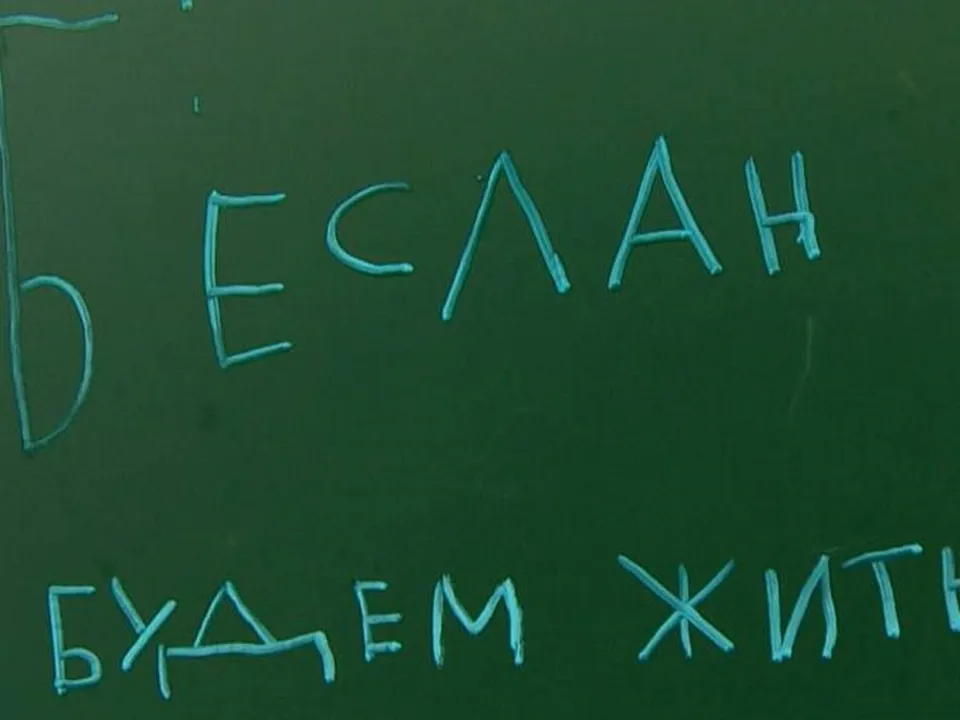 БЕСЛАН
БУДЕМ ЖИТЬ